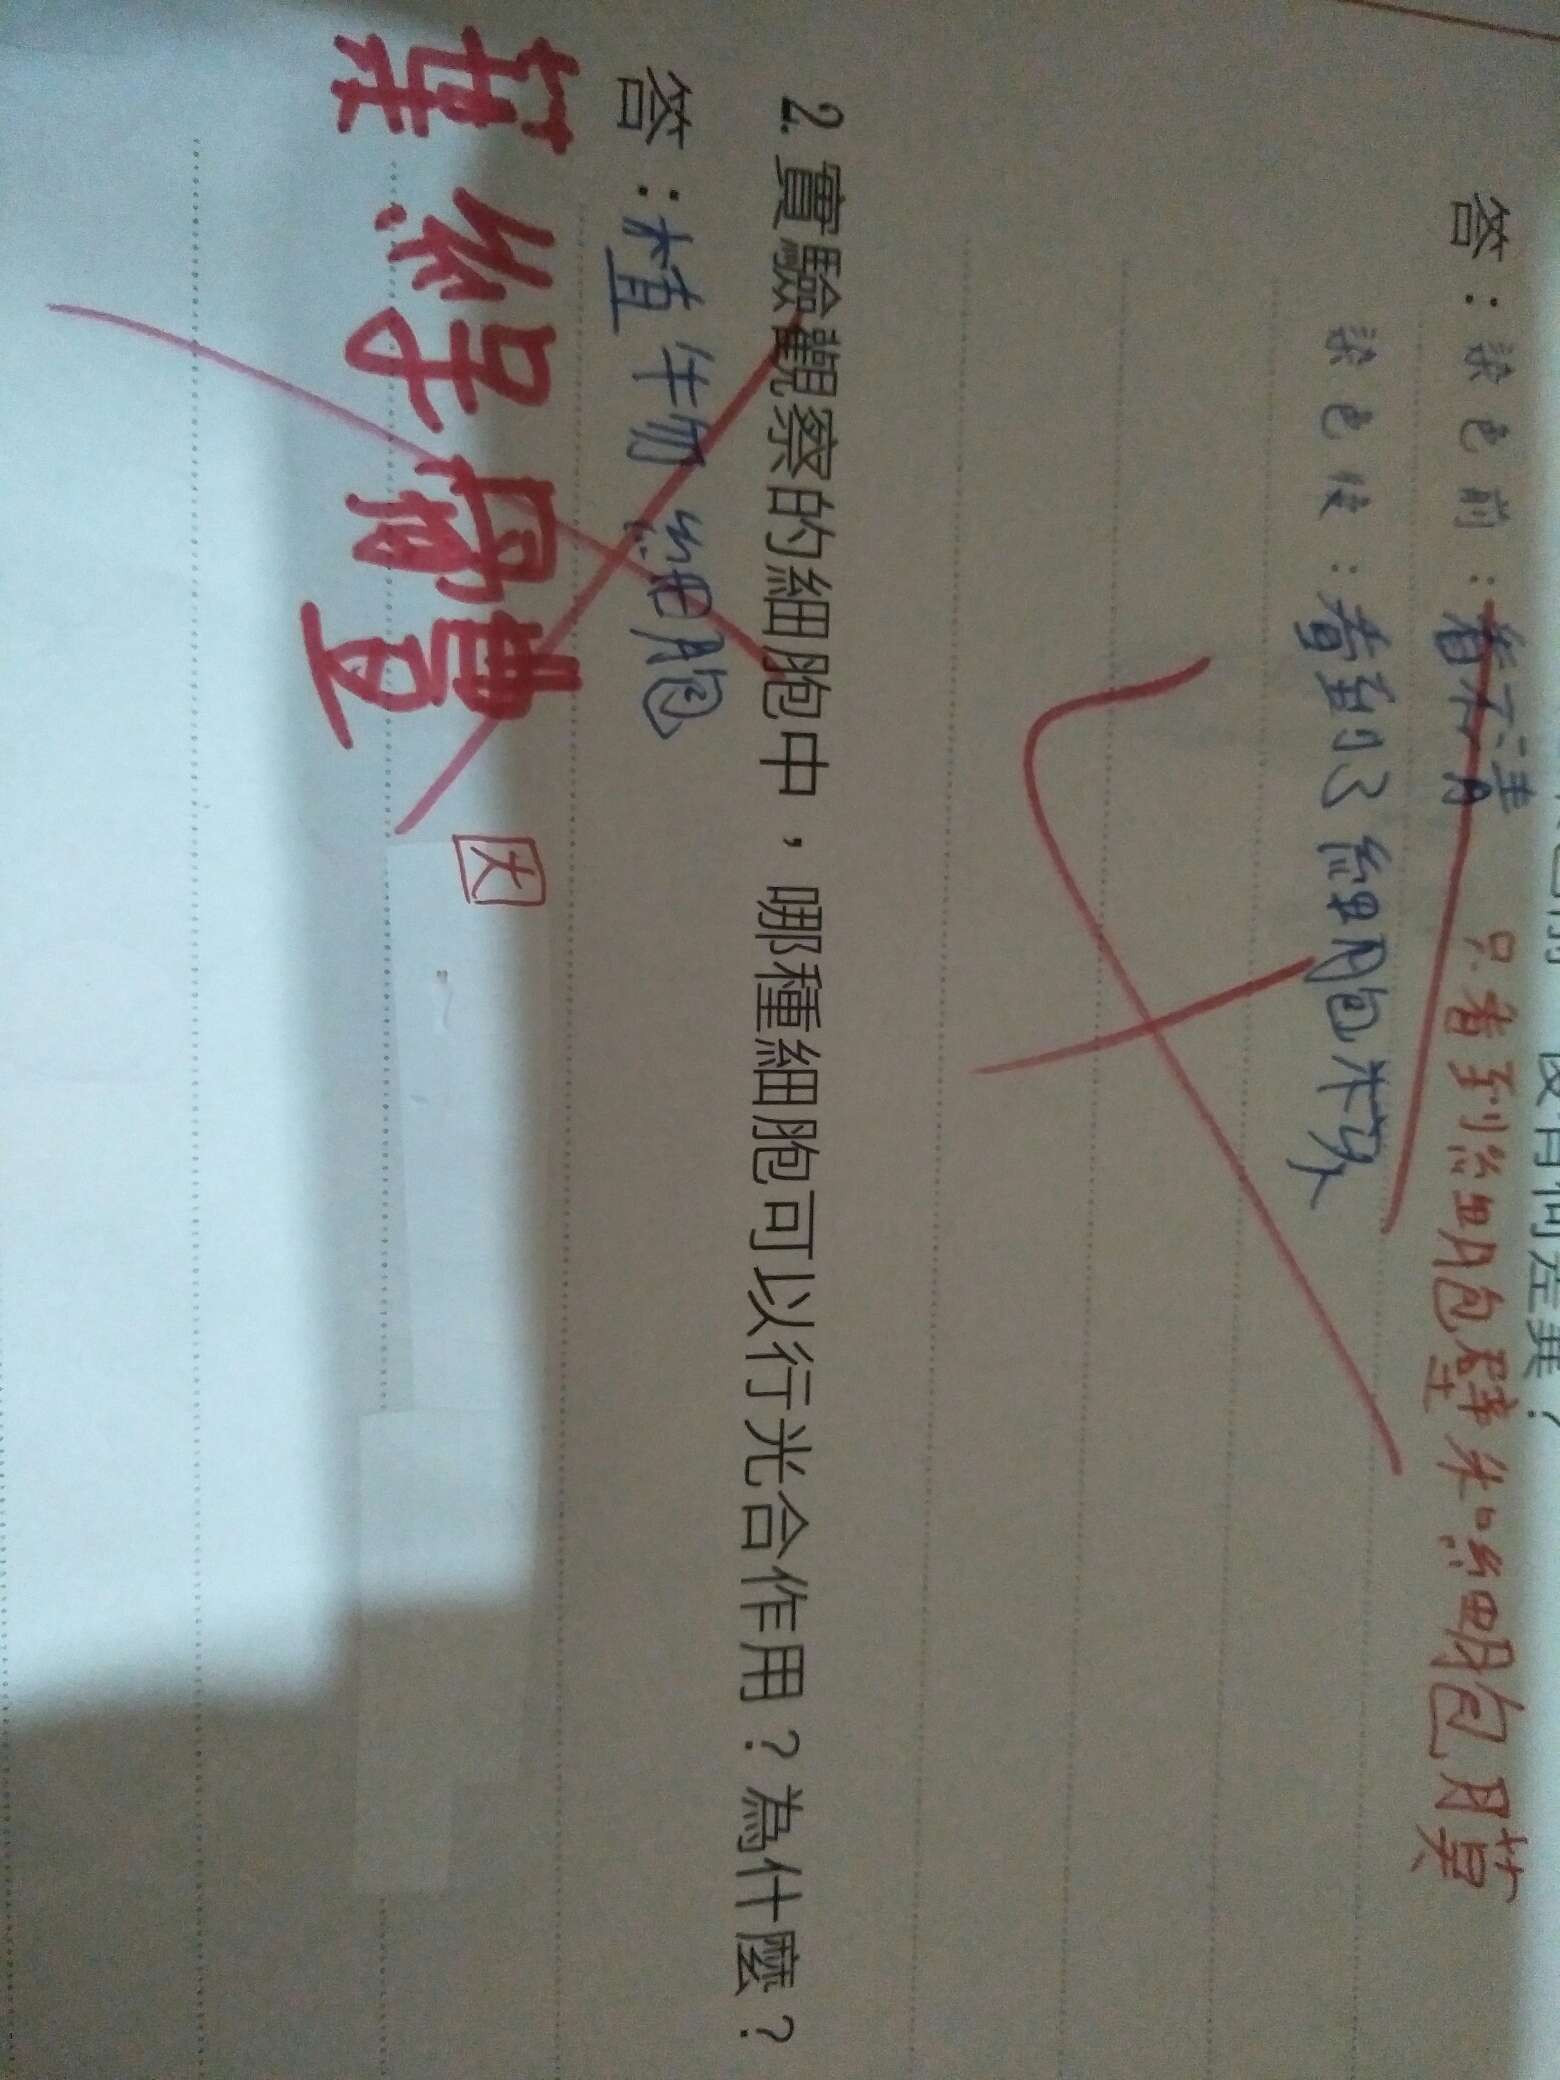 有何差異？
答：染色前：看不清 只看到細胞壁和細胞膜
染色後：看到了細胞核
2. 實驗觀察的細胞中，哪種細胞可以行光合作用？為什麼？
答：植物細胞
葉綠體 因